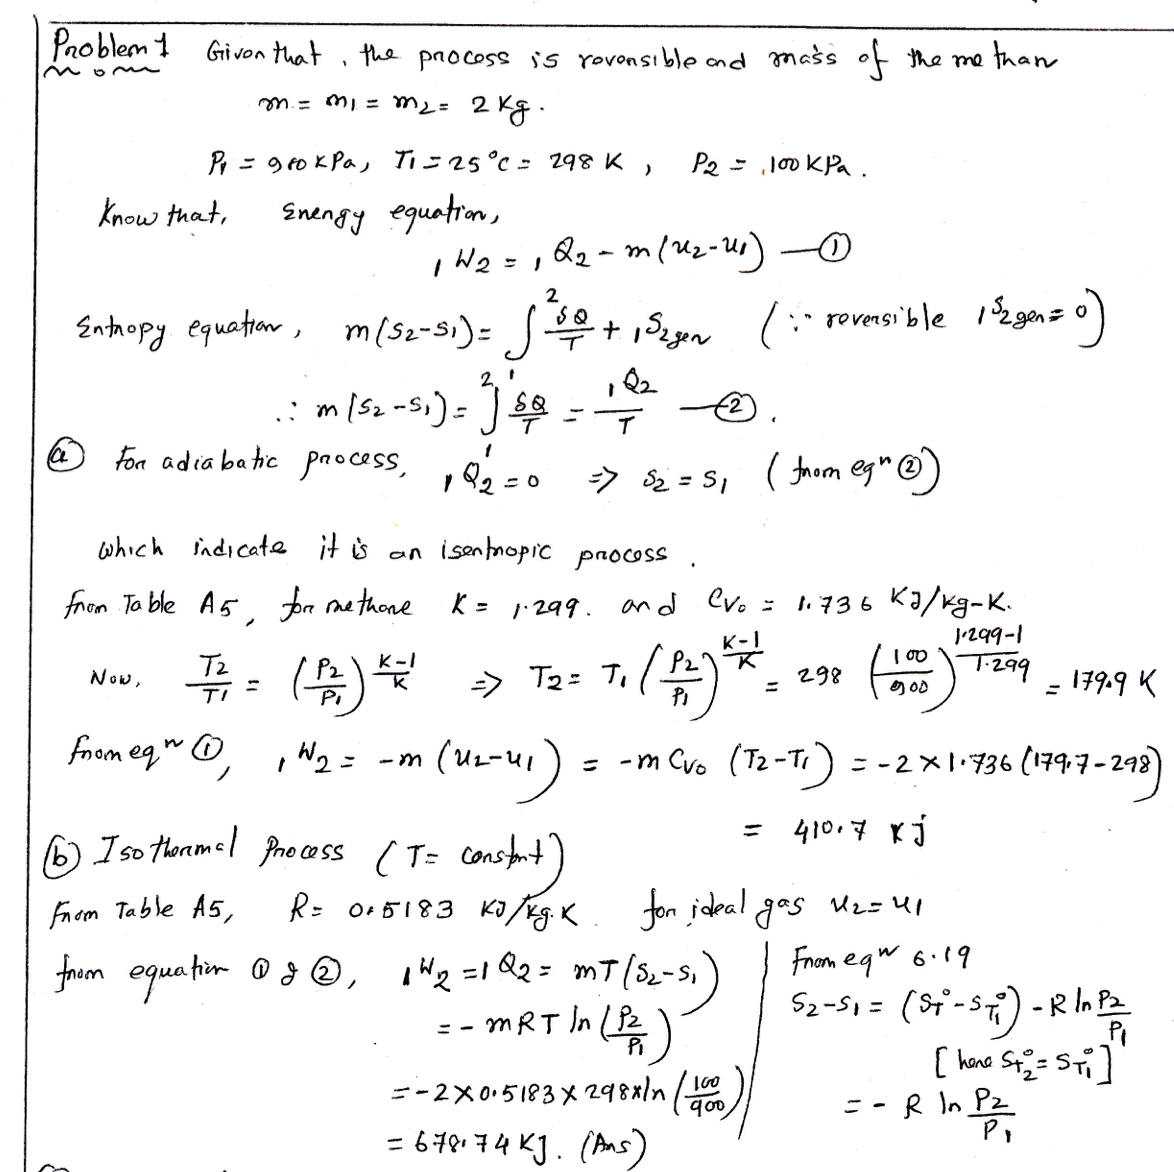 Problem 1 Given that, the process is reversible and mass of the methan
m = m1 = m2 = 2 Kg.
P1 = 900 KPa, T1 = 25 °C = 298 K, P2 = 100 KPa.
Know that, Energy equation,
1W2 = 1Q2 - m(u2-u1) —①
Entropy equation, m(s2-s1) = ∫₁² δQ/T + 1S2gen (∵ reversible 1S2gen = 0)
∴ m(s2-s1) = ∫₁² δQ/T = 1Q2/T —②.
ⓐ For adiabatic process, 1Q2 = 0 ⇒ s2 = s1 (from eqn ②)
which indicate it is an isentropic process.
from Table A5, for methane K = 1.299. and Cvo = 1.736 KJ/kg-K.
Now, T2/T1 = (P2/P1)^((K-1)/K) ⇒ T2 = T1 (P2/P1)^((K-1)/K) = 298 (100/900)^((1.299-1)/1.299) = 179.9 K
from eqn ①, 1W2 = -m(u2-u1) = -m Cvo (T2-T1) = -2×1.736 (179.7-298)
= 410.7 KJ
ⓑ Isothermal Process (T = constant)
From Table A5, R = 0.5183 KJ/kg.K for ideal gas u2 = u1
from equation ① & ②, 1W2 = 1Q2 = mT(s2-s1)
= - mRT ln(P2/P1)
= -2×0.5183×298×ln(100/900)
= 678.74 KJ. (Ans)
From eqn 6.19
s2-s1 = (S°T - S°T1) - R ln P2/P1
[here S°T2 = S°T1]
= - R ln P2/P1